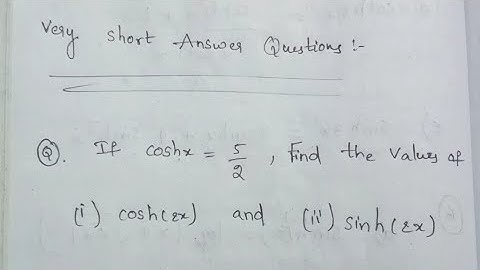 Very short Answer Questions :-
Q. If coshx = 5/2, Find the values of
(i) cosh(2x) and (ii) sinh(2x)